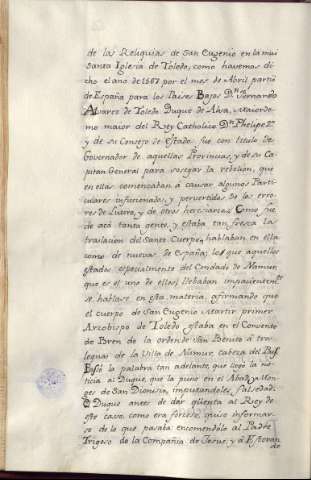 de las Reliquias de San Eugenio en la mui
Santa Iglesia de Toledo, como havemos di
cho el año de 1567 por el mes de Abril partio
de España para los Paises Bajos Dn Fernando
Alvarez de Toledo Duque de Alva, Maiordo
mo maior del Rey Catholico Dn Phelipe 2º
y de su Consejo de Estado fue con titulo de
Governador de aquellas Provincias, y de su Ca
pitan General para sosegar la rebelion, que
en ellas comenzaban à causar algunos Parti
culares inficionados, y pervertidos de los erro
res de Lutero, y de otros heresiarcas. Como fue
de acá tanta gente, y estaba tan fresca la
traslacion del Santo Cuerpo, hablaban en ella
como de nuevas de España; los que aquellos
estados especialmente del Condado de Namur,
que es el uno de ellos llebaban impacientemte
se hablase en esta materia, afirmando que
el cuerpo de San Eugenio Martir primer
Arzobispo de Toledo estaba en el Convento
de Bren de la orden de San Benito à tres
leguas de la Villa de Namur, cabeza del Pais
Pasó la palabra tan adelante, que llegó la no
ticia al Duque, que la puso en el Abad, y Mon
ges de San Dionisio, imputandoles falsedad.
El Duque antes de dar qüenta al Rey de
este caso como era forzoso, quiso informar
se de lo que pasaba encomendólo al Padre
Trigoso de la Compañia de Jesus, y à Estevan
de